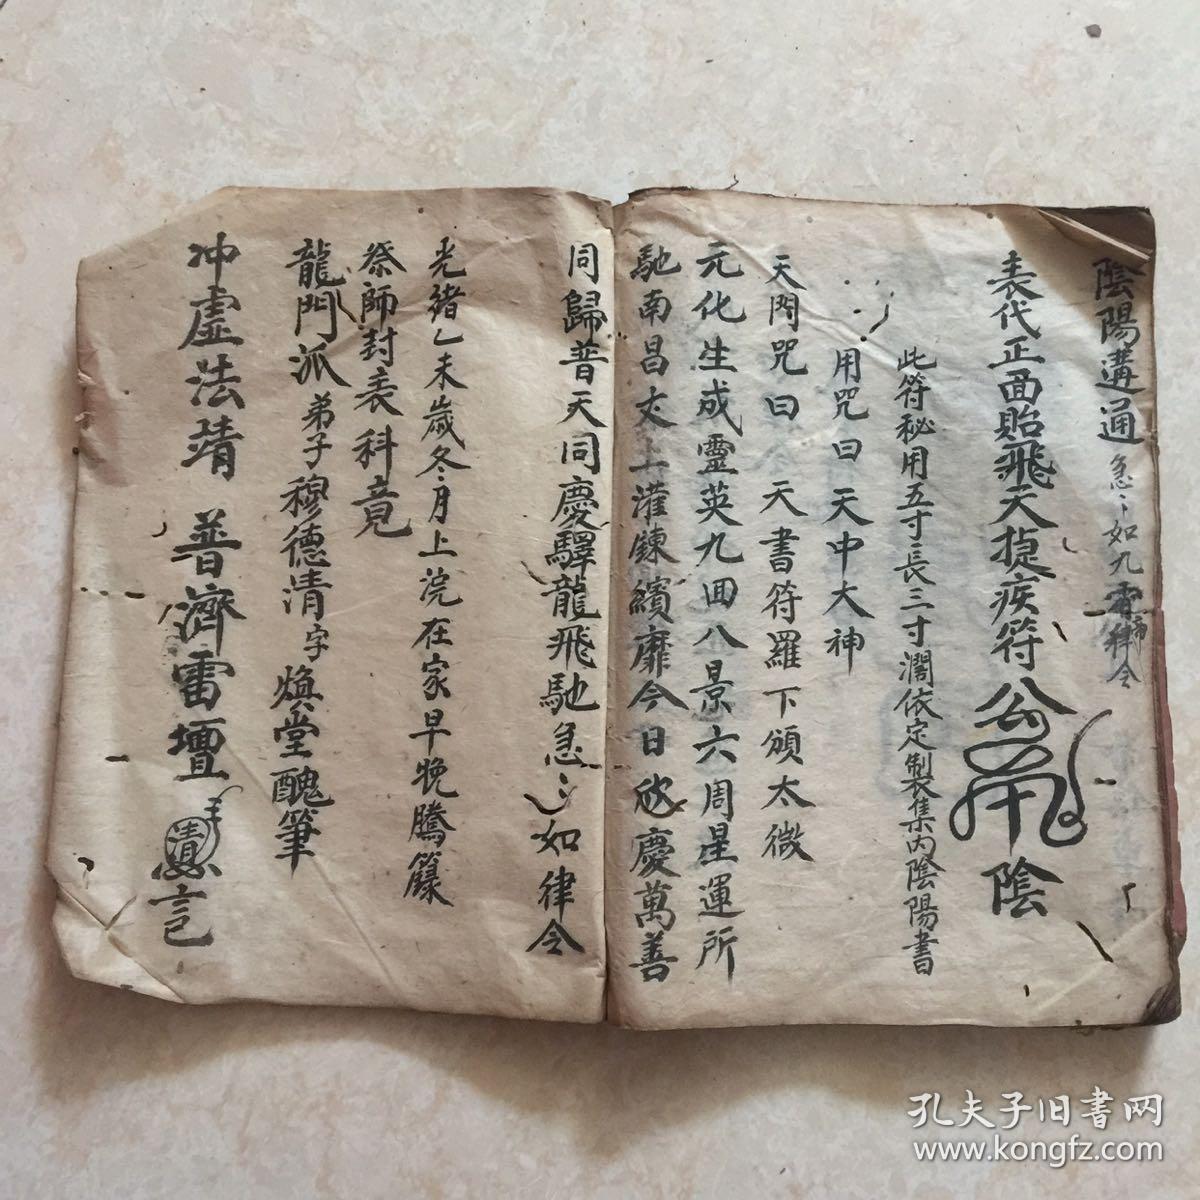 陰陽溝通急〻如九霄律令
表代正面貽飛天捷疾符
陰
此符秘用五寸長三寸濶依定製集内陰陽書
用咒曰天中大神
天門咒曰 天書符羅下頒太微
元化生成靈英九回八景六周星運所
馳南昌丈上灌鍊繽靡今日欣慶萬善
同歸普天同慶驛龍飛馳急〻如律令
光緒乙未歲冬月上浣在家早晚騰籙
祭師封表科竟
龍門派弟子穆德清字煥堂醜筆
冲虛法靖 普濟雷壇
記
孔夫子旧书网
www.kongfz.com